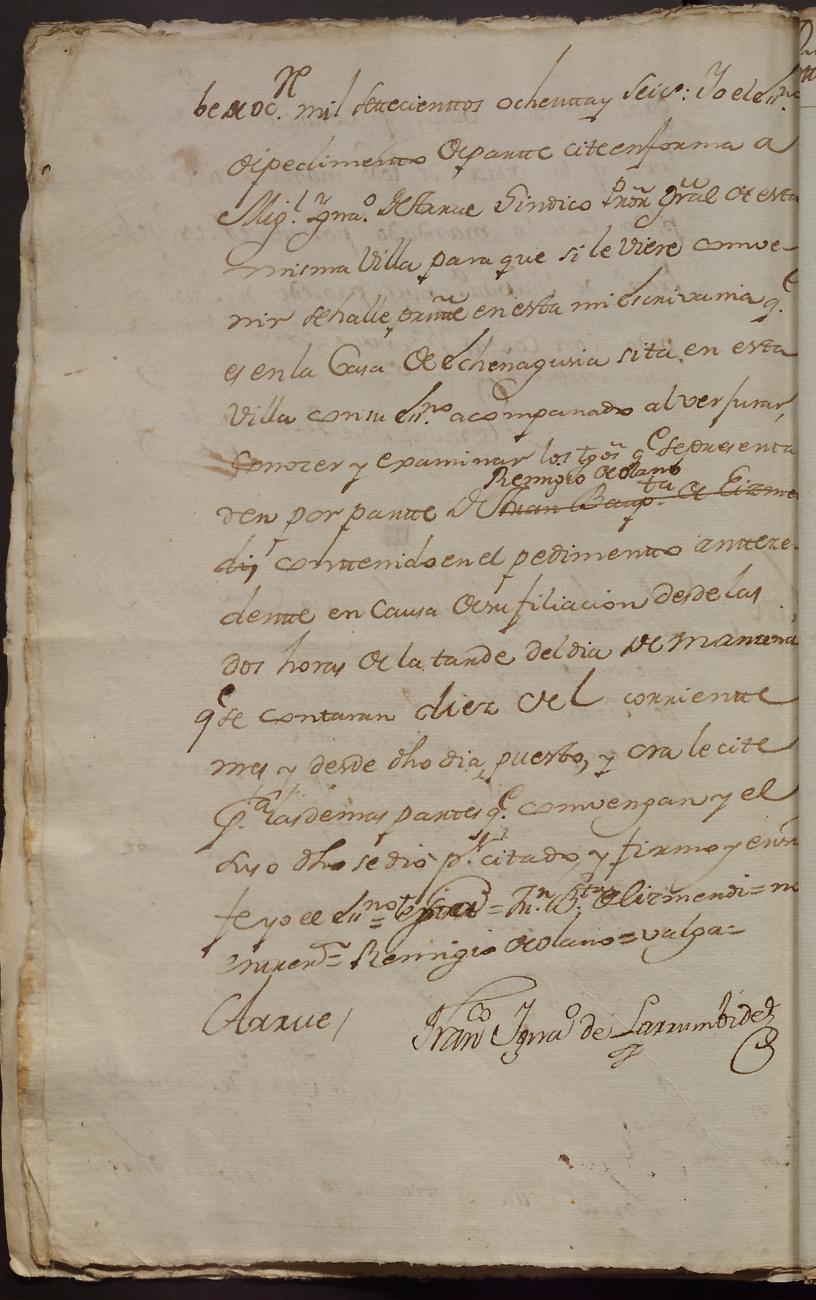 be de oc.n mil settecienttos ochentta y seis: Yo el ess.no
de pedimento de partte cite en forma a
Mig.l Ygna.o de Arrue Sindico Prõr Grãl de esta
misma Villa para que si le viere conve-
nir se halle prnte en esta mi escrivania q.e
es en la Casa de Echenagusia sita en esta
Villa con su ess.no acompanado al ver jurar,
conocer y examinar los tgõs q.e se presenta
Remigio de olano
ren por partte de Juan Baup.ta de Eizmen
di, conttenido en el pedimentto anttece-
dentte en Causa de su filiacion desde las
dos horas de la tarde del dia de manana
q.e se contaran diez del corrientte
mes y desde dho dia, puesto, y ora le cite
p.a las demas partes q.e convengan y el
suyo dho se dio p.r citado y firmo y en
fe yo el ess.no = = Jn. B.ta de Eizmendi = no
enrrer.do = Remigio de olano = valga =
Arrue /
Fran.co Ygna.o de Larrumbide